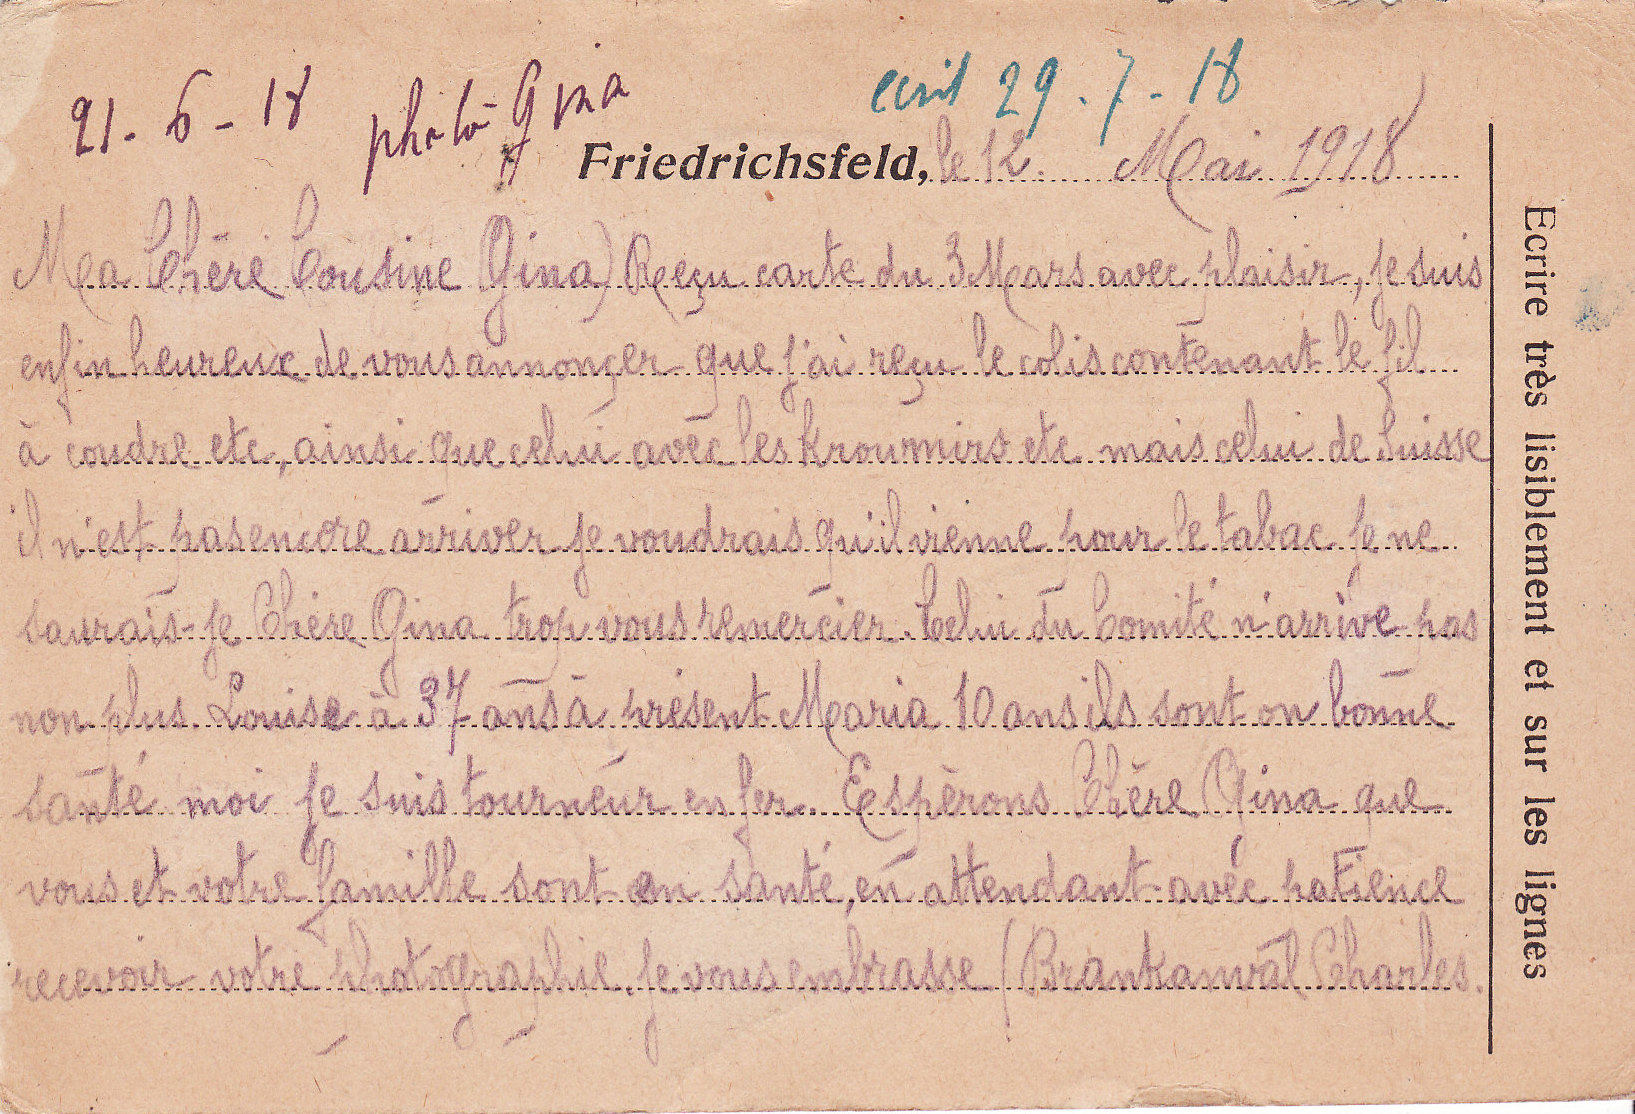 21-6-18 photo Gina
ecrit 29.7-18
Friedrichsfeld, le 12. Mai 1918
Ma Chère Cousine (Gina) Reçu carte du 3 Mars avec plaisir, je suis
enfin heureux de vous annonçer que j'ai reçu le colis contenant le fil
à coudre etc, ainsi que celui avec les Kroumirs etc mais celui de Suisse
il n'est pas encore arriver je voudrais qu'il vienne pour le tabac je ne
saurais-je Chère Gina trop vous remercier. Celui du Comité n'arrive pas
non plus. Louise à 37 ans à présent Maria 10 ans ils sont on bonne
santé moi je suis tourneur en fer. Espèrons Chère Gina que
vous et votre famille sont en santé, en attendant avec patience
recevoir votre photographie. Je vous embrasse (Brankanval Charles.
Ecrire très lisiblement et sur les lignes